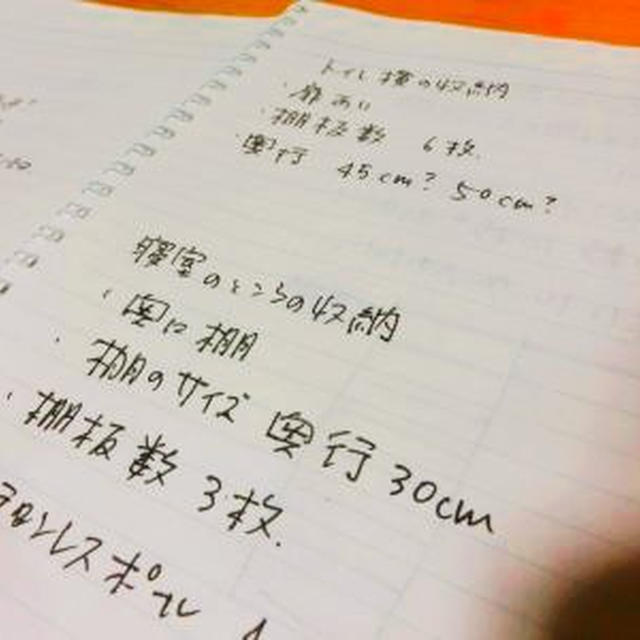 トイレ横の収納
・扉あり
・棚板数 6枚.
・奥行 45cm? 50cm?
寝室のところの収納
・奥に棚
・棚のサイズ 奥行30cm
・棚板数 3枚.
レスポール